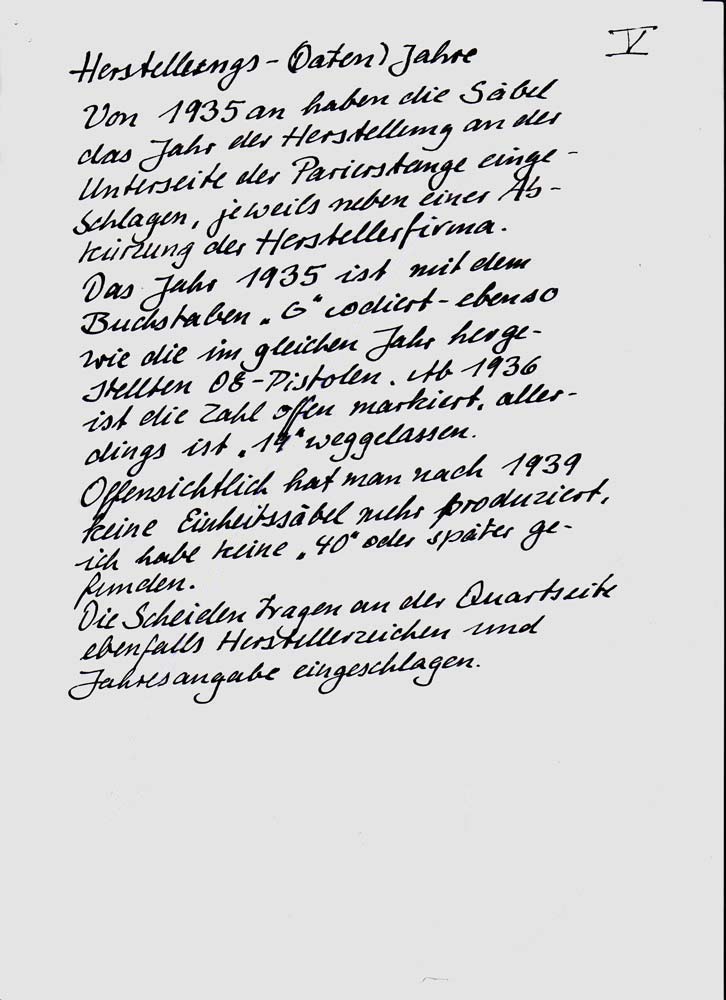 V
Herstellungs-(Daten) Jahre
Von 1935 an haben die Säbel
das Jahr der Herstellung an der
Unterseite der Parierstange einge-
schlagen, jeweils neben einer Ab-
kürzung der Herstellerfirma.
Das Jahr 1935 ist mit dem
Buchstaben „G" codiert - ebenso
wie die im gleichen Jahr herge-
stellten 08-Pistolen. Ab 1936
ist die Zahl offen markiert, aller-
dings ist „19" weggelassen.
Offensichtlich hat man nach 1939
keine Einheitssäbel mehr produziert,
ich habe keine „40" oder später ge-
funden.
Die Scheiden tragen an der Quartseite
ebenfalls Herstellerzeichen und
Jahresangabe eingeschlagen.